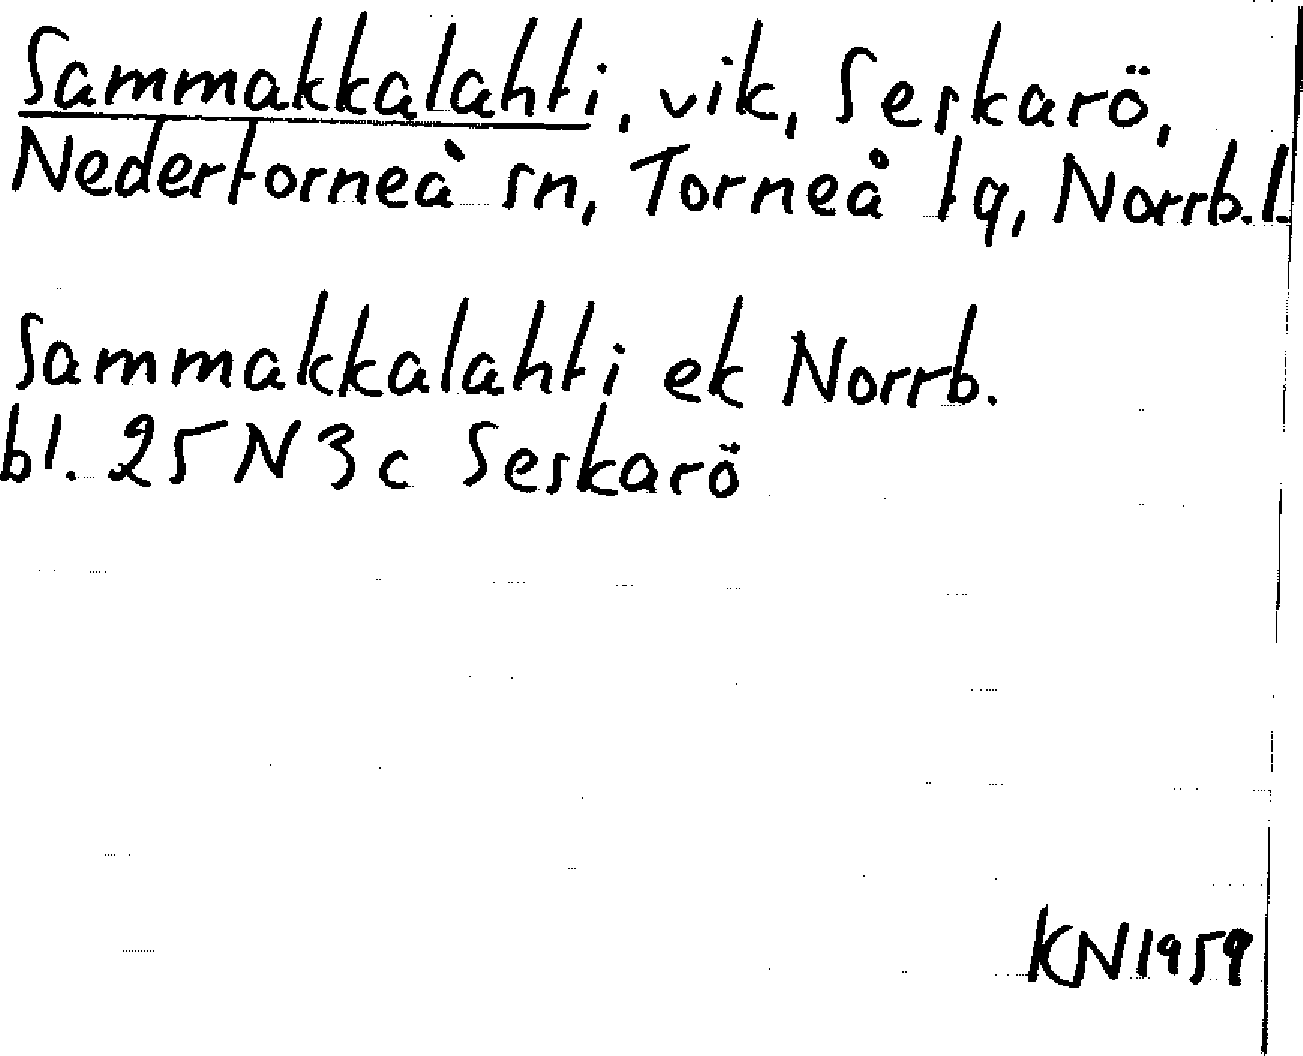 Sammakkalahti, vik, Seskarö,
Nedertorneå sn, Torneå tg, Norrb.l.
Sammakkalahti ek Norrb.
bl. 25 N 3 c Seskarö
KN 1959